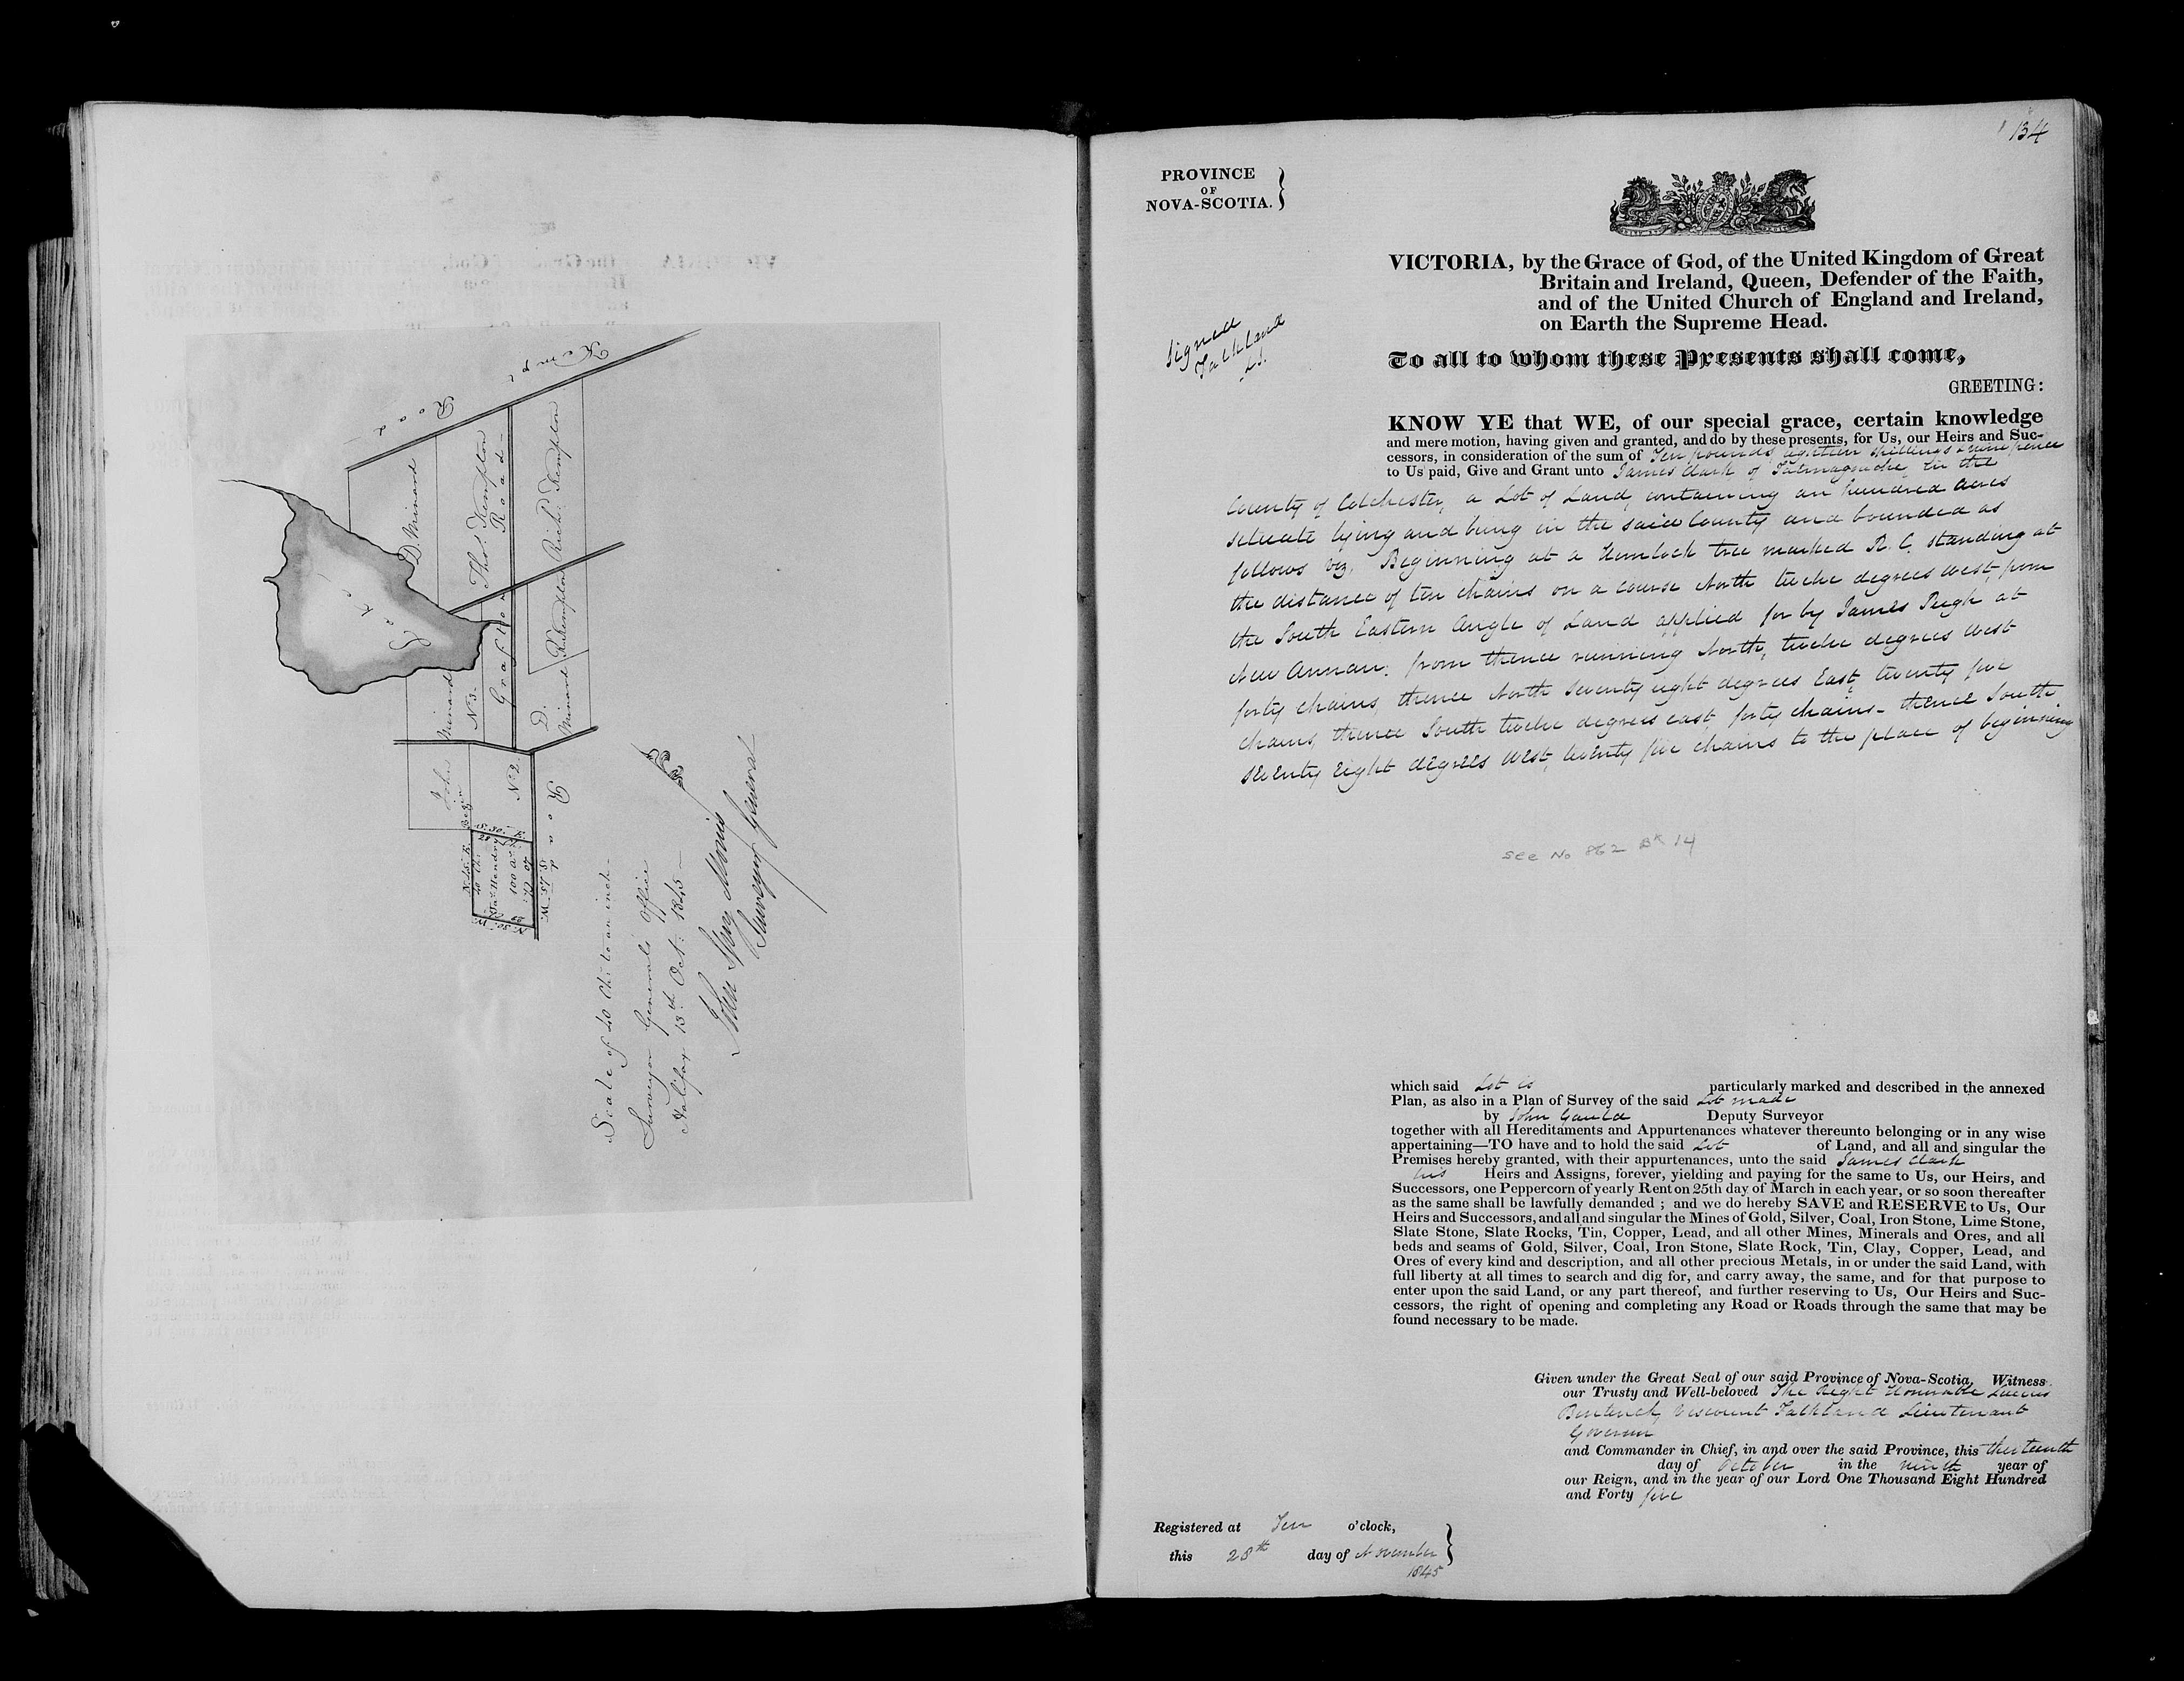 Kempt
Road
D. Minard
Thos. Kempton
Grafton Road
Richd. Kempton
R. Kempton
Lake
Minard
No. 3.
D.
Minard
John
No. 2.
Road
Begin
S. 30. E.
28
N. 48. E.
40 Ch:
Jas. Hendry
100 a
40 Ch:
S. 48. W.
N. 30. W.
Scale of 40 Chs. to an inch
Surveyor General's Office
Halifax 13th Oct: 1845
John Spry Morris
Surveyor General
134
PROVINCE
OF
NOVA-SCOTIA.
VICTORIA, by the Grace of God, of the United Kingdom of Great
Britain and Ireland, Queen, Defender of the Faith,
and of the United Church of England and Ireland,
on Earth the Supreme Head.
Signed
Falkland
L.S.
To all to whom these Presents shall come,
GREETING:
KNOW YE that WE, of our special grace, certain knowledge
and mere motion, having given and granted, and do by these presents, for Us, our Heirs and Suc-
cessors, in consideration of the sum of Ten pounds eighteen shillings & nine pence
to Us paid, Give and Grant unto James Clark of Tatmagouche in the
County of Colchester, a Lot of Land, containing an hundred acres
situate lying and being in the said County and bounded as
follows viz. Beginning at a Hemlock tree marked R. C. standing at
the distance of ten chains on a course North twelve degrees west, from
the South Eastern Angle of Land applied for by James Peigh at
New Annan: from thence running North, twelve degrees west
forty chains, thence North seventy eight degrees East, twenty five
chains, thence South twelve degrees east, forty chains - thence South
seventy eight degrees west, twenty five chains to the place of beginning
see No 862 Bk 14
which said Lot is particularly marked and described in the annexed
Plan, as also in a Plan of Survey of the said Lot made
by John Gauld Deputy Surveyor
together with all Hereditaments and Appurtenances whatever thereunto belonging or in any wise
appertaining—TO have and to hold the said Lot of Land, and all and singular the
Premises hereby granted, with their appurtenances, unto the said James Clark
his Heirs and Assigns, forever, yielding and paying for the same to Us, our Heirs, and
Successors, one Peppercorn of yearly Rent on 25th day of March in each year, or so soon thereafter
as the same shall be lawfully demanded ; and we do hereby SAVE and RESERVE to Us, Our
Heirs and Successors, and all and singular the Mines of Gold, Silver, Coal, Iron Stone, Lime Stone,
Slate Stone, Slate Rocks, Tin, Copper, Lead, and all other Mines, Minerals and Ores, and all
beds and seams of Gold, Silver, Coal, Iron Stone, Slate Rock, Tin, Clay, Copper, Lead, and
Ores of every kind and description, and all other precious Metals, in or under the said Land, with
full liberty at all times to search and dig for, and carry away, the same, and for that purpose to
enter upon the said Land, or any part thereof, and further reserving to Us, Our Heirs and Suc-
cessors, the right of opening and completing any Road or Roads through the same that may be
found necessary to be made.
Given under the Great Seal of our said Province of Nova-Scotia, Witness
our Trusty and Well-beloved The Right Honorable Lucius
Bentinck, Viscount Falkland Lieutenant
Governor
and Commander in Chief, in and over the said Province, this thirteenth
day of October in the ninth year of
our Reign, and in the year of our Lord One Thousand Eight Hundred
and Forty five
Registered at Ten o'clock,
this 28th day of November
1845